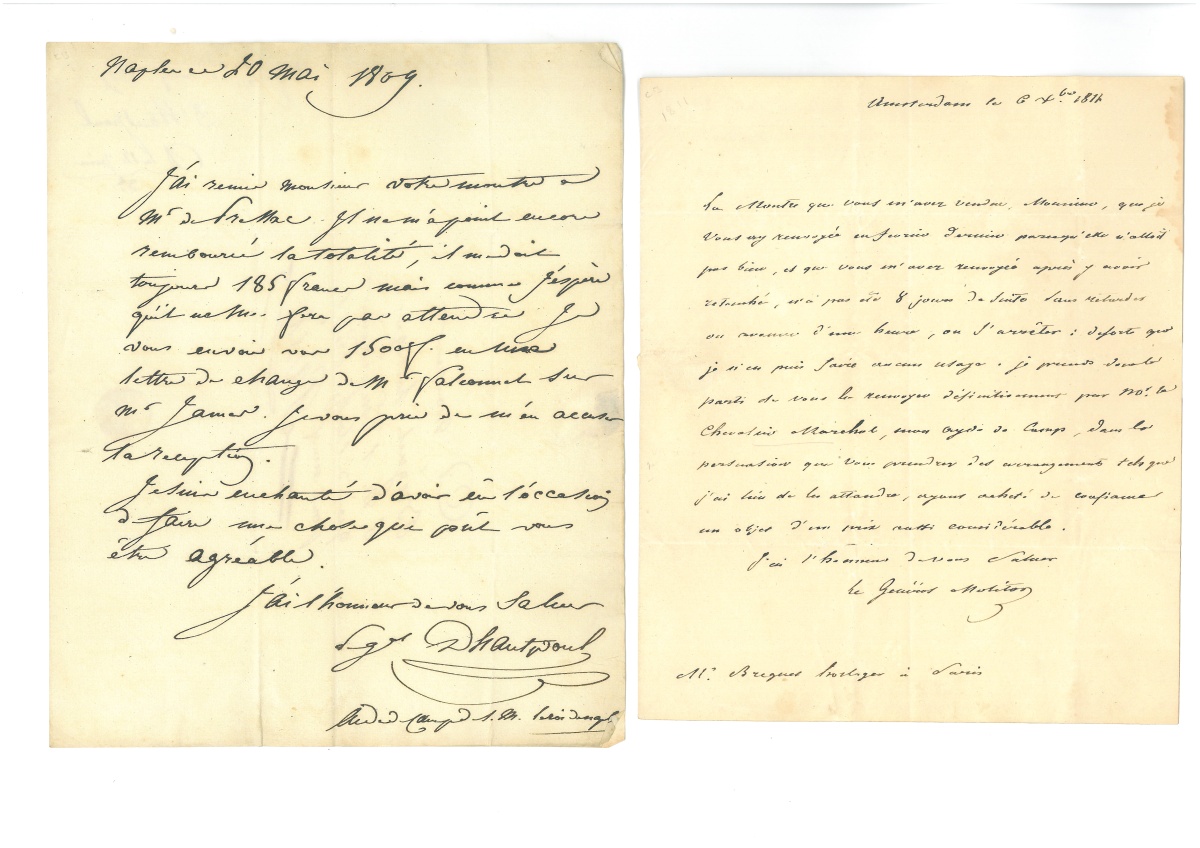 Naples ce 20 Mai 1809.
J'ai remis monsieur votre montre a
Mr de Il ne m'a point encore
remboursé la totalité, il me doit
toujours 185 francs mais comme j'espère
qu'il ne me fera pas attendre Je
vous envoie vos 1500f. en une
lettre de change de Mr falconnet sur
Mr James. Je vous prie de m'en accuser
la reception.
Je suis enchanté d'avoir eû l'occasion
de faire une chose qui pût vous
être agréable.
J'ai l'honneur de vous saluer
Le gal Dhautpoul
Aide de Camp de S. M. le roi de nap
Amsterdam le 6 Xbre 1811
La Montre que vous m'avez vendue, Monsieur, que je
vous ay renvoyée en fevrier dernier parcequ'elle n'alloit
pas bien, et que vous m'avez renvoyée après y avoir
retouché, n'a pas été 8 jours de suite sans retarder
ou avancer d'une heure, ou s'arrêter : desorte que
je n'en puis faire aucun usage. je prends donc le
parti de vous la renvoyer définitivement par Mr. le
Chevalier Marchal, mon ayde de Camp, dans la
persuasion que vous prendrez des arrangements tels que
j'ai lieu de les attendre, ayant acheté de confiance
un objet d'un prix aussi considérable.
J'ai l'honneur de vous saluer
le Molitor
Mr. Breguet horloger à Paris
1811